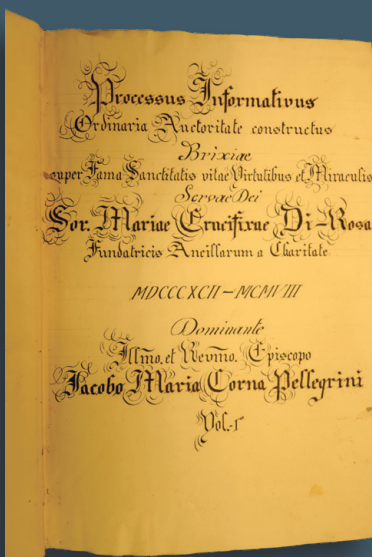 Processus Informativus
Ordinaria Auctoritate constructus
Brixiae
super Fama Sanctitatis vitae Virtutibus et Miraculis
Servae Dei
Sor. Mariae Crucifixae Di-Rosa
Fundatricis Ancillarum a Charitate
MDCCCXCII – MCMVIII
Dominante
Illm̄o. et Revm̄o. Episcopo
Jacobo Maria Corna Pellegrini
Vol.-I